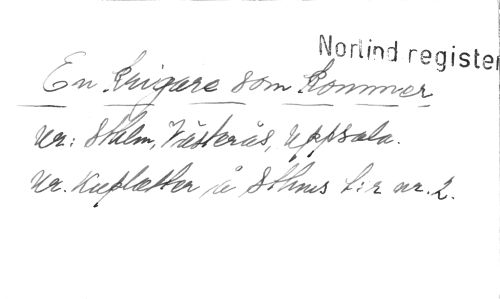 Norlind register
En krigare som kommer
ur: Sthlm, Västerås, Uppsala.
ur. Kupletter å Sthms t:r nr. 2.